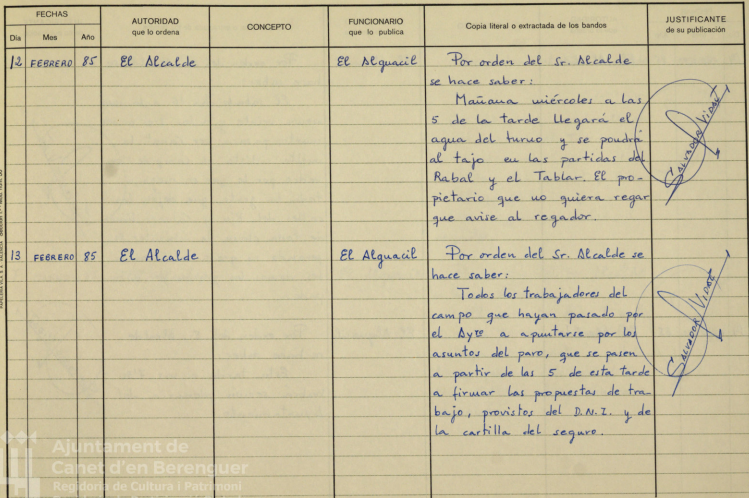 FECHAS
Día Mes Año
AUTORIDAD
que lo ordena
CONCEPTO
FUNCIONARIO
que lo publica
Copia literal o extractada de los bandos
JUSTIFICANTE
de su publicación
12 FEBRERO 85 El Alcalde El Alguacil Por orden del Sr. Alcalde
se hace saber:
Mañana miércoles a las
5 de la tarde llegará el
agua del turno y se pondrá
al tajo en las partidas del
Rabal y el Tablar. El pro-
pietario que no quiera regar
que avise al regador.
SALVADOR VIDAL
13 FEBRERO 85 El Alcalde El Alguacil Por orden del Sr. Alcalde se
hace saber:
Todos los trabajadores del
campo que hayan pasado por
el Aytº a apuntarse por los
asuntos del paro, que se pasen
a partir de las 5 de esta tarde
a firmar las propuestas de tra-
bajo, provistos del D.N.I. y de
la cartilla del seguro.
SALVADOR VIDAL
Ajuntament de
Canet d'en Berenguer
Regidoria de Cultura i Patrimoni